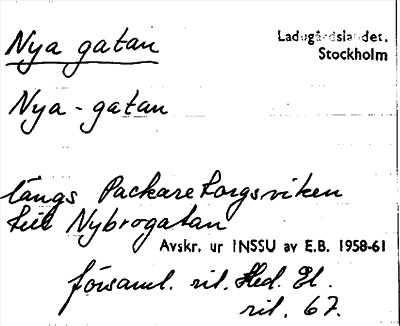 Nya gatan
Ladugårdslandet.
Stockholm
Nya-gatan
längs Packaretorgsviken
till Nybrogatan
Avskr. ur INSSU av E.B. 1958-61
församl. ril. Hed. El.
ril. 67.